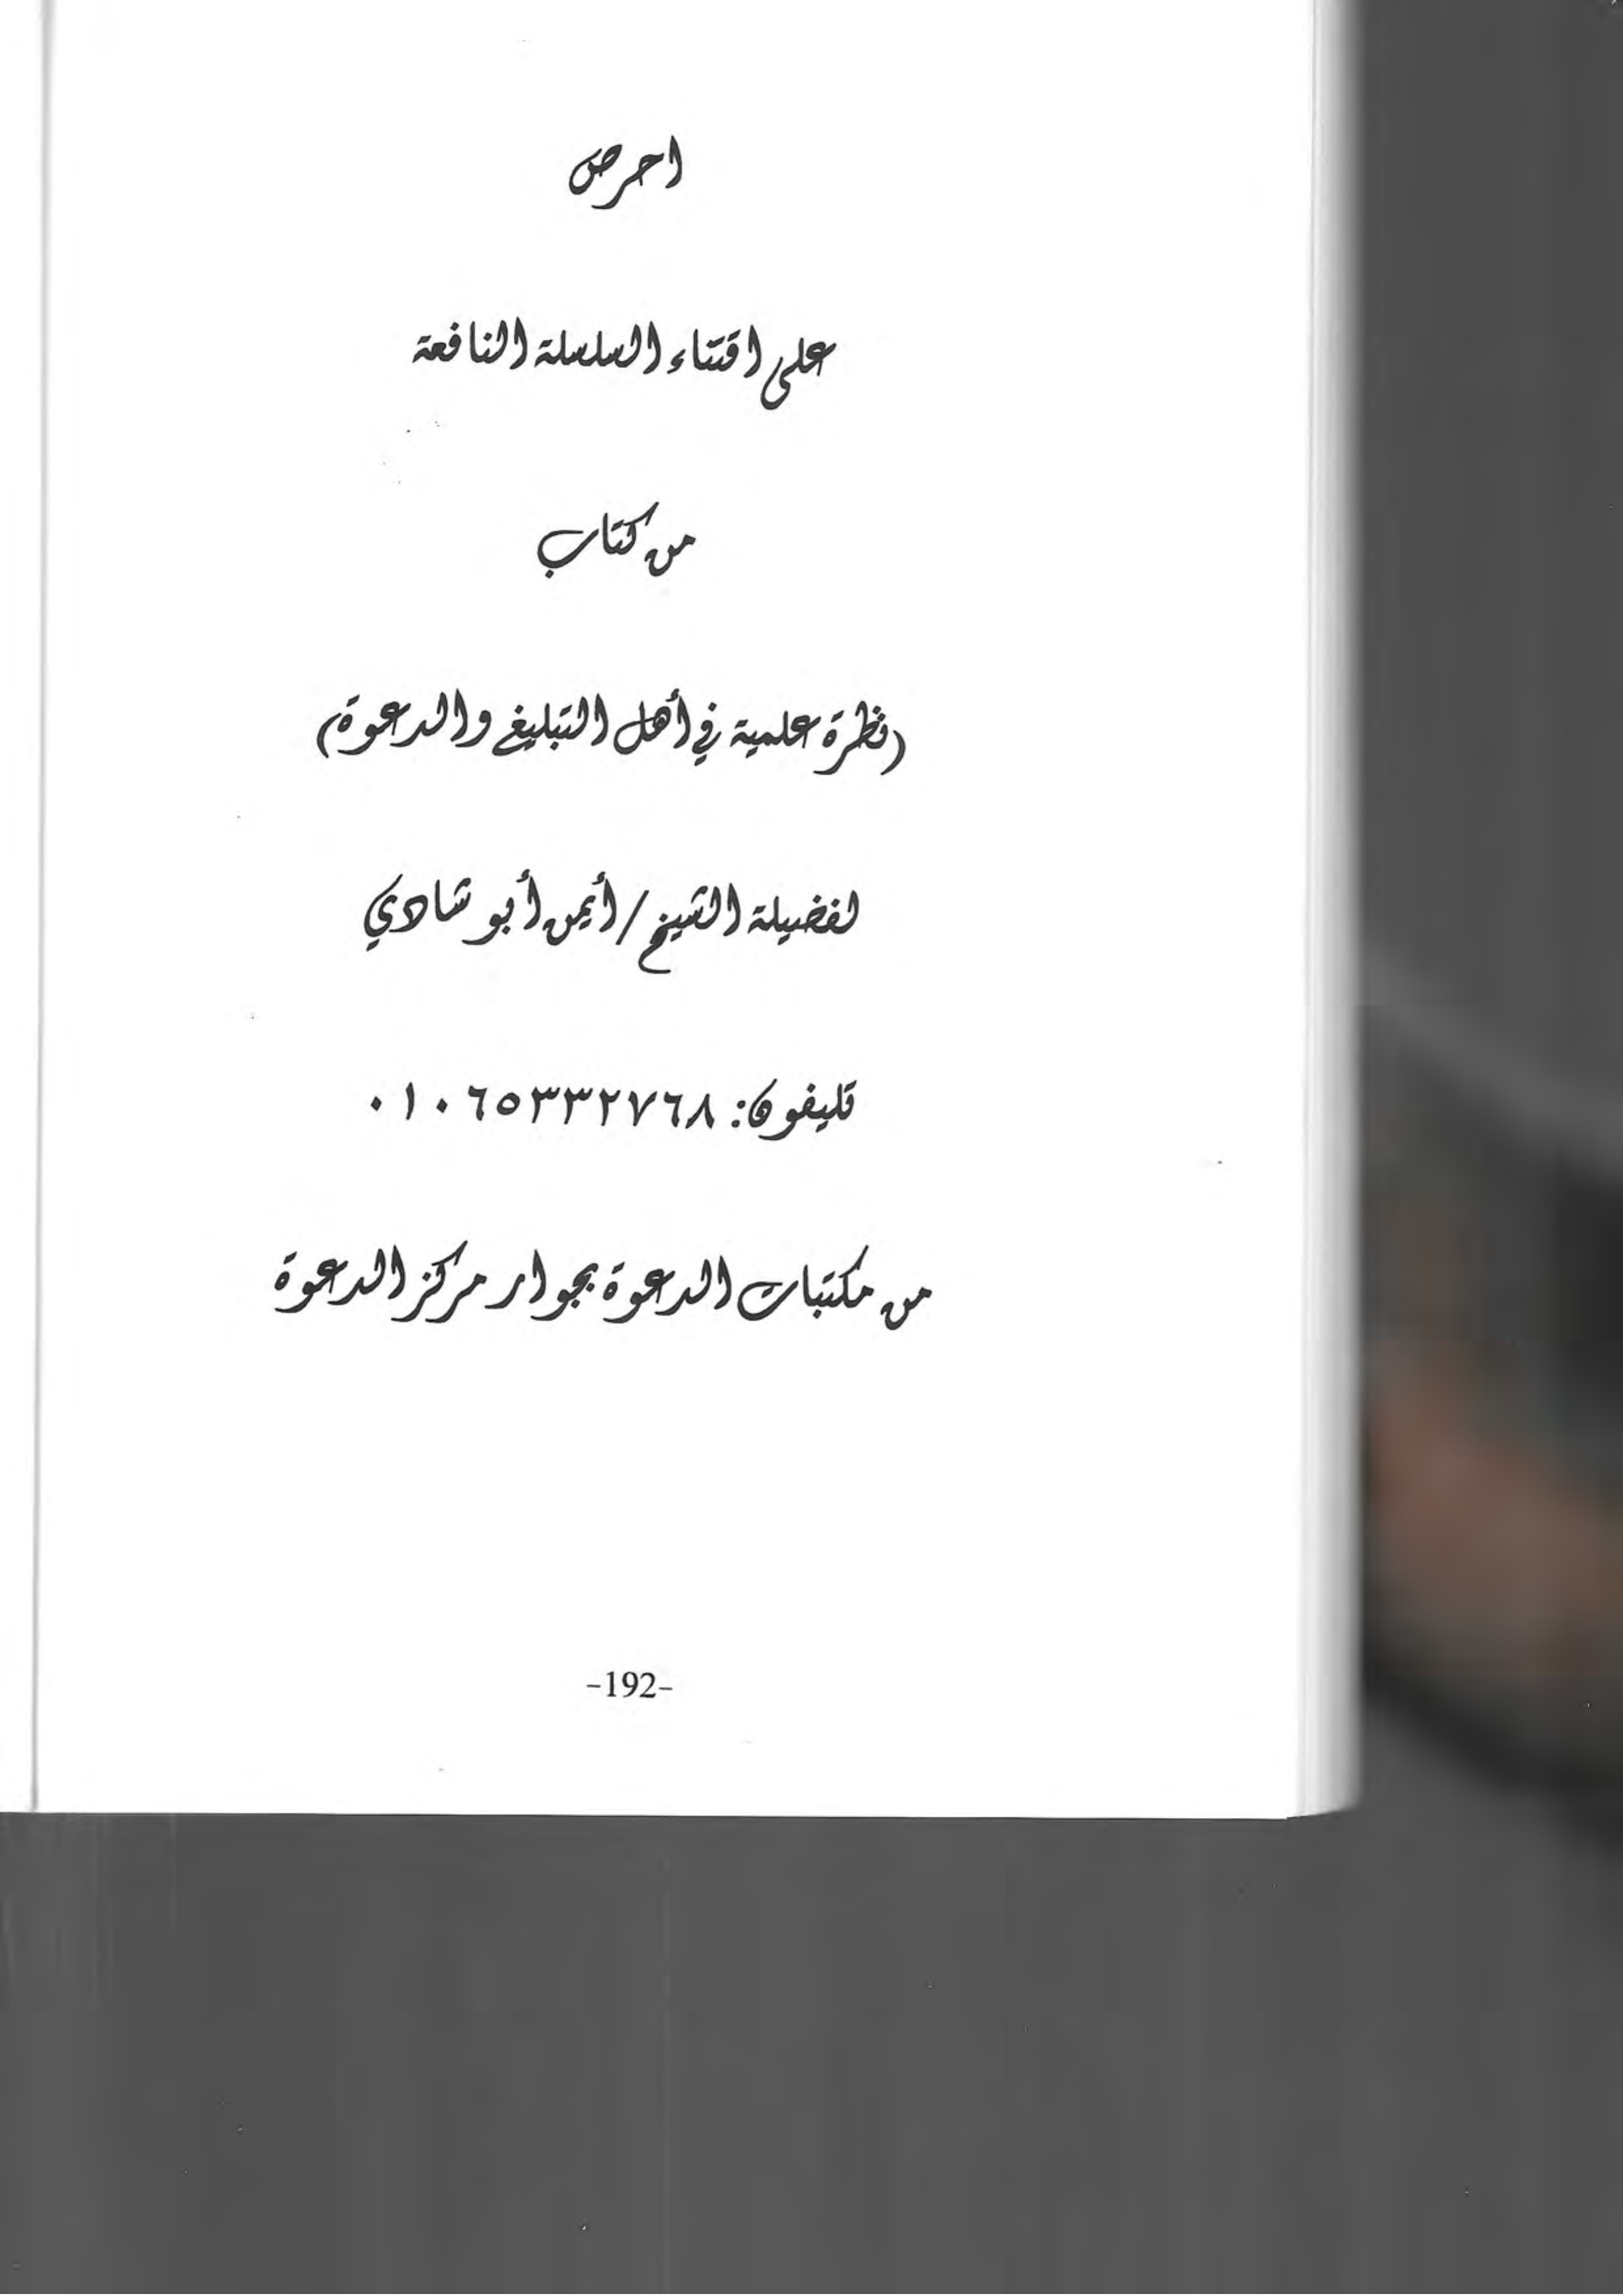 احرص
على اقتناء السلسلة النافعة
من كتاب
(نظرة علمية في أهل التبليغ والدعوة)
لفضيلة الشيخ / أيمن أبو شادي
تليفون: ٠١٠٦٥٣٣٢٧٦٨
من مكتبات الدعوة بجوار مركز الدعوة
-192-